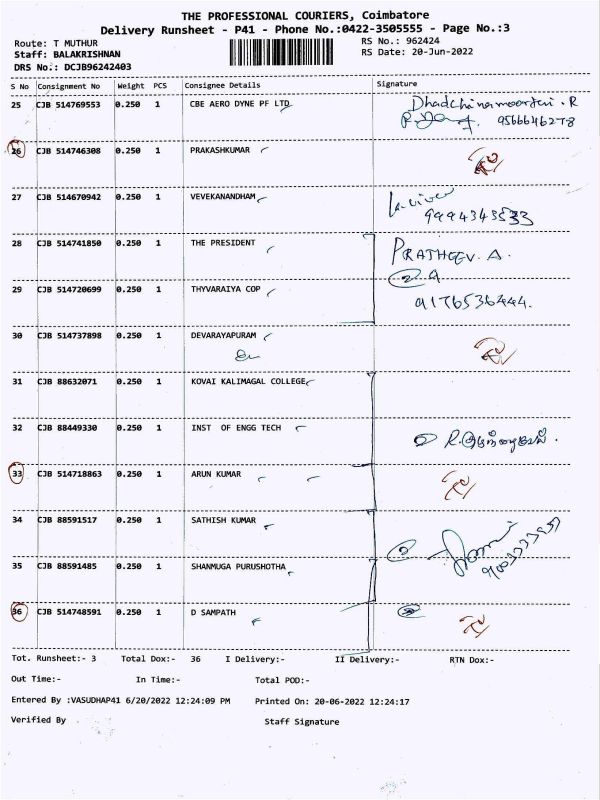 THE PROFESSIONAL COURIERS, Coimbatore
Delivery Runsheet - P41 - Phone No.:0422-3505555 - Page No.:3
Route: T MUTHUR RS No.: 962424
Staff: BALAKRISHNAN RS Date: 20-Jun-2022
DRS No.: DCJB96242403
S No Consignment No Weight PCS Consignee Details Signature
25 CJB 514769553 0.250 1 CBE AERO DYNE PF LTD Dhadchinamoorthi . R
9566646278
26 CJB 514746308 0.250 1 PRAKASHKUMAR
27 CJB 514670942 0.250 1 VEVEKANANDHAM
9994343533
28 CJB 514741850 0.250 1 THE PRESIDENT PRATHEEV. A.
29 CJB 514720699 0.250 1 THYVARAIYA COP 9176536444.
30 CJB 514737898 0.250 1 DEVARAYAPURAM
31 CJB 88632071 0.250 1 KOVAI KALIMAGAL COLLEGE
32 CJB 88449330 0.250 1 INST OF ENGG TECH
33 CJB 514718863 0.250 1 ARUN KUMAR
34 CJB 88591517 0.250 1 SATHISH KUMAR
35 CJB 88591485 0.250 1 SHANMUGA PURUSHOTHA
36 CJB 514748591 0.250 1 D SAMPATH
Tot. Runsheet:- 3 Total Dox:- 36 I Delivery:- II Delivery:- RTN Dox:-
Out Time:- In Time:- Total POD:-
Entered By :VASUDHAP41 6/20/2022 12:24:09 PM Printed On: 20-06-2022 12:24:17
Verified By Staff Signature